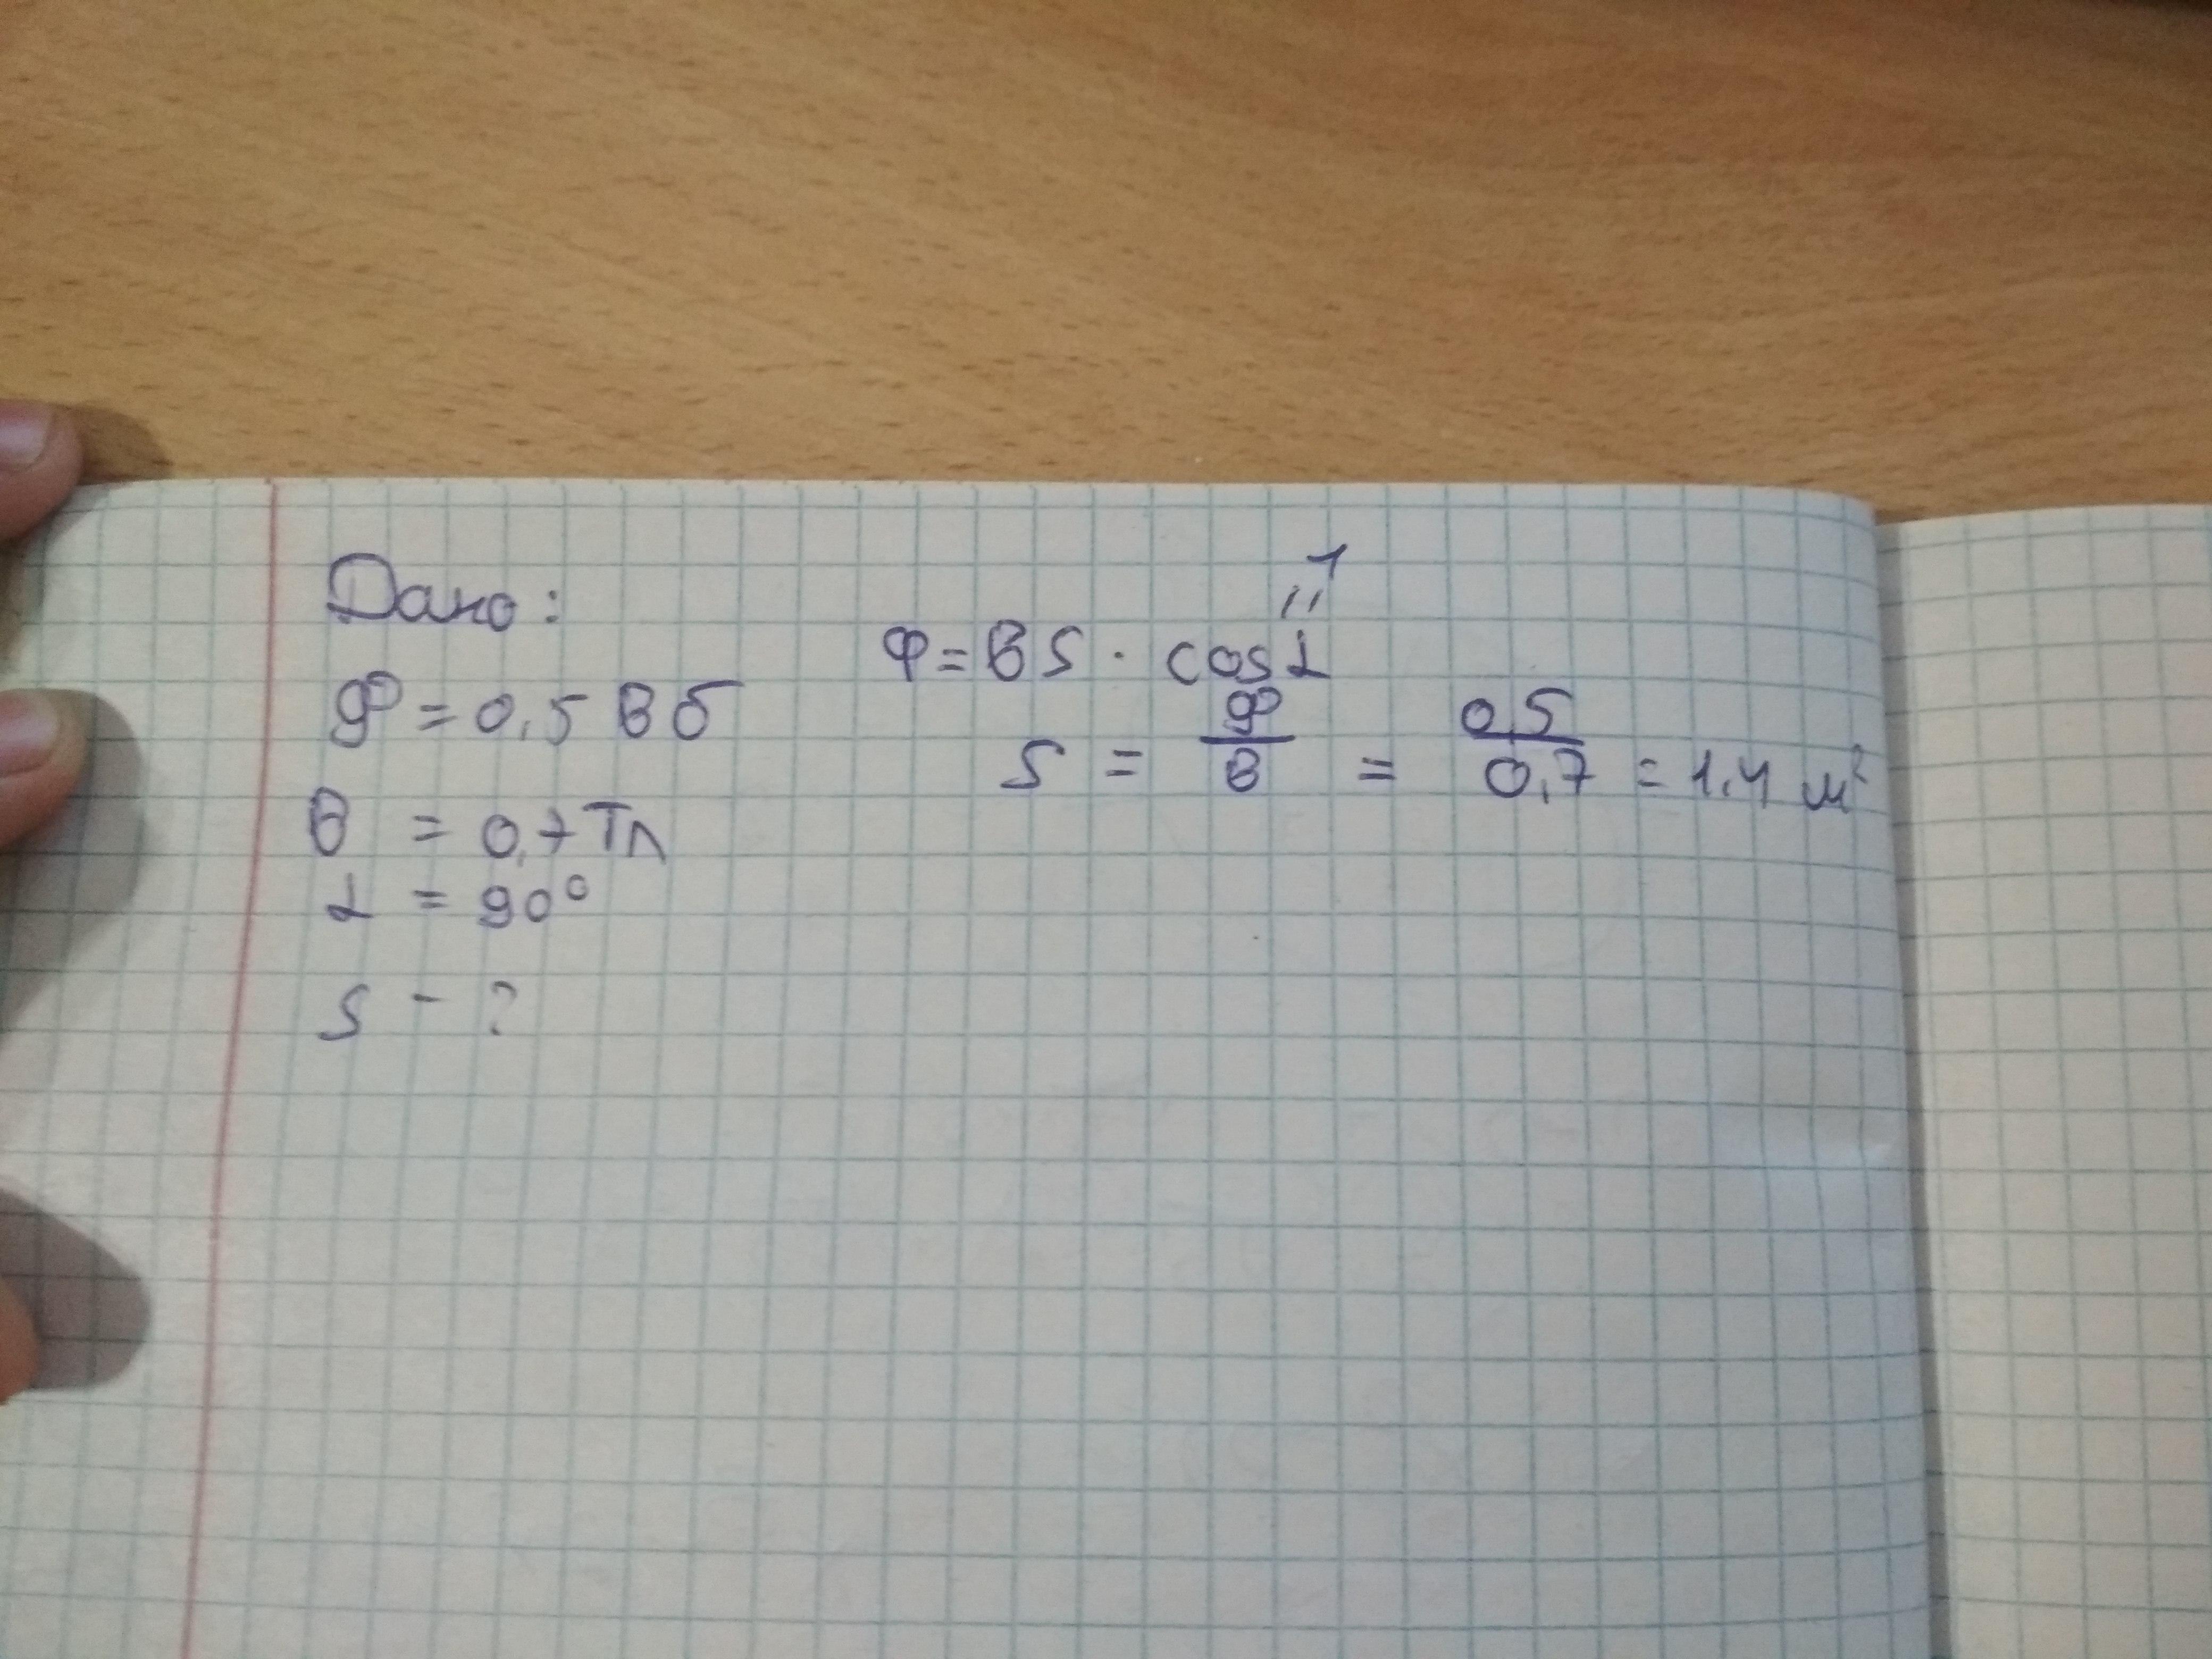 Дано:
Φ = 0,5 Вб
B = 0,7 Тл
α = 90°
S - ?
1
"
Φ = BS · cosα
S = Φ/B = 0,5/0,7 = 1,4 м²